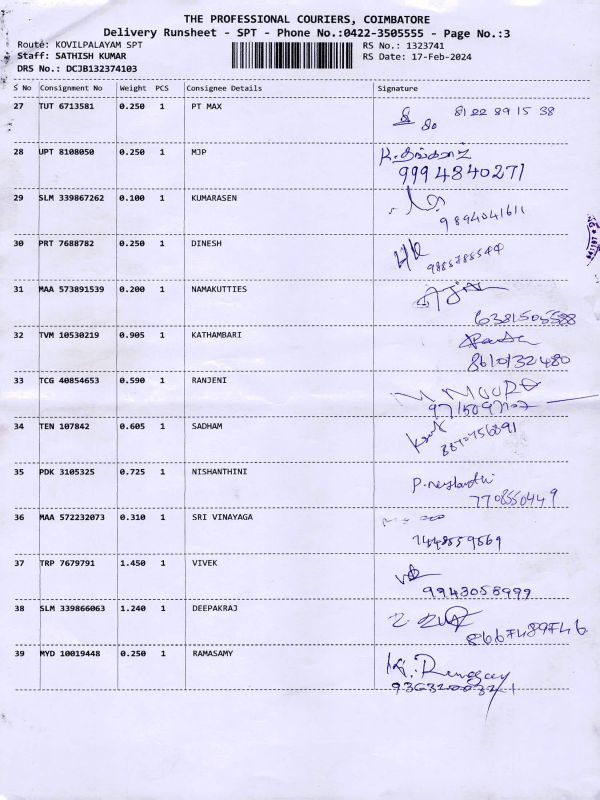 THE PROFESSIONAL COURIERS, COIMBATORE
Delivery Runsheet - SPT - Phone No.:0422-3505555 - Page No.:3
Route: KOVILPALAYAM SPT RS No.: 1323741
Staff: SATHISH KUMAR RS Date: 17-Feb-2024
DRS No.: DCJB132374103
S No Consignment No Weight PCS Consignee Details Signature
27 TUT 6713581 0.250 1 PT MAX 81 22 89 15 38
28 UPT 8108050 0.250 1 MJP
9994840271
29 SLM 339867262 0.100 1 KUMARASEN
9894041611
30 PRT 7688782 0.250 1 DINESH
31 MAA 573891539 0.200 1 NAMAKUTTIES
6381505588
32 TVM 10530219 0.905 1 KATHAMBARI
8610132480
33 TCG 40854653 0.590 1 RANJENI
34 TEN 107842 0.605 1 SADHAM
35 PDK 3105325 0.725 1 NISHANTHINI
7708550449
36 MAA 572232073 0.310 1 SRI VINAYAGA
7448559569
37 TRP 7679791 1.450 1 VIVEK
9943055999
38 SLM 339866063 1.240 1 DEEPAKRAJ
8667489746
39 MYD 10019448 0.250 1 RAMASAMY